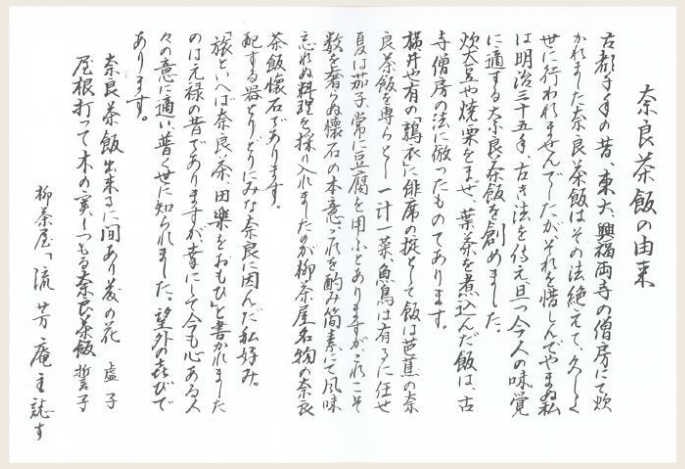 奈良茶飯の由来
古都千年の昔、東大、興福両寺の僧房にて炊
かれました奈良茶飯はその法絶えて、久しく
世に行われませんでしたがそれを惜しんでやまぬ私
は明治三十五年、古き法を伝え且つ今人の味覚
に適する奈良茶飯を創めました。
炊大豆や焼栗をまぜ、葉茶を煮込んだ飯は、古
寺僧房の法に倣ったものであります。
横井也有の「鶉衣」に俳席の掟として飯は芭蕉の奈
良茶飯を専らとし一汁一菜、魚鳥は有るに任せ
夏は茄子、常に豆腐を用ふとありますが、これこそ
数を奢らぬ懐石の本意、これを酌み簡素にて風味
忘れぬ料理を採り入れましたのが柳茶屋名物の奈良
茶飯懐石であります。
配する器とりどりにみな奈良に因んだ私好み。
「旅といへば奈良茶、田楽をおもひ」と書かれました
のは元禄の昔でありますが、幸にして今も心ある人
々の意に適い、普く世に知られました。望外の喜びで
あります。
奈良茶飯出来るに間あり藤の花 虚子
屋根打って木の実しつもる奈良茶飯 誓子
柳茶屋「流芳庵主誌す